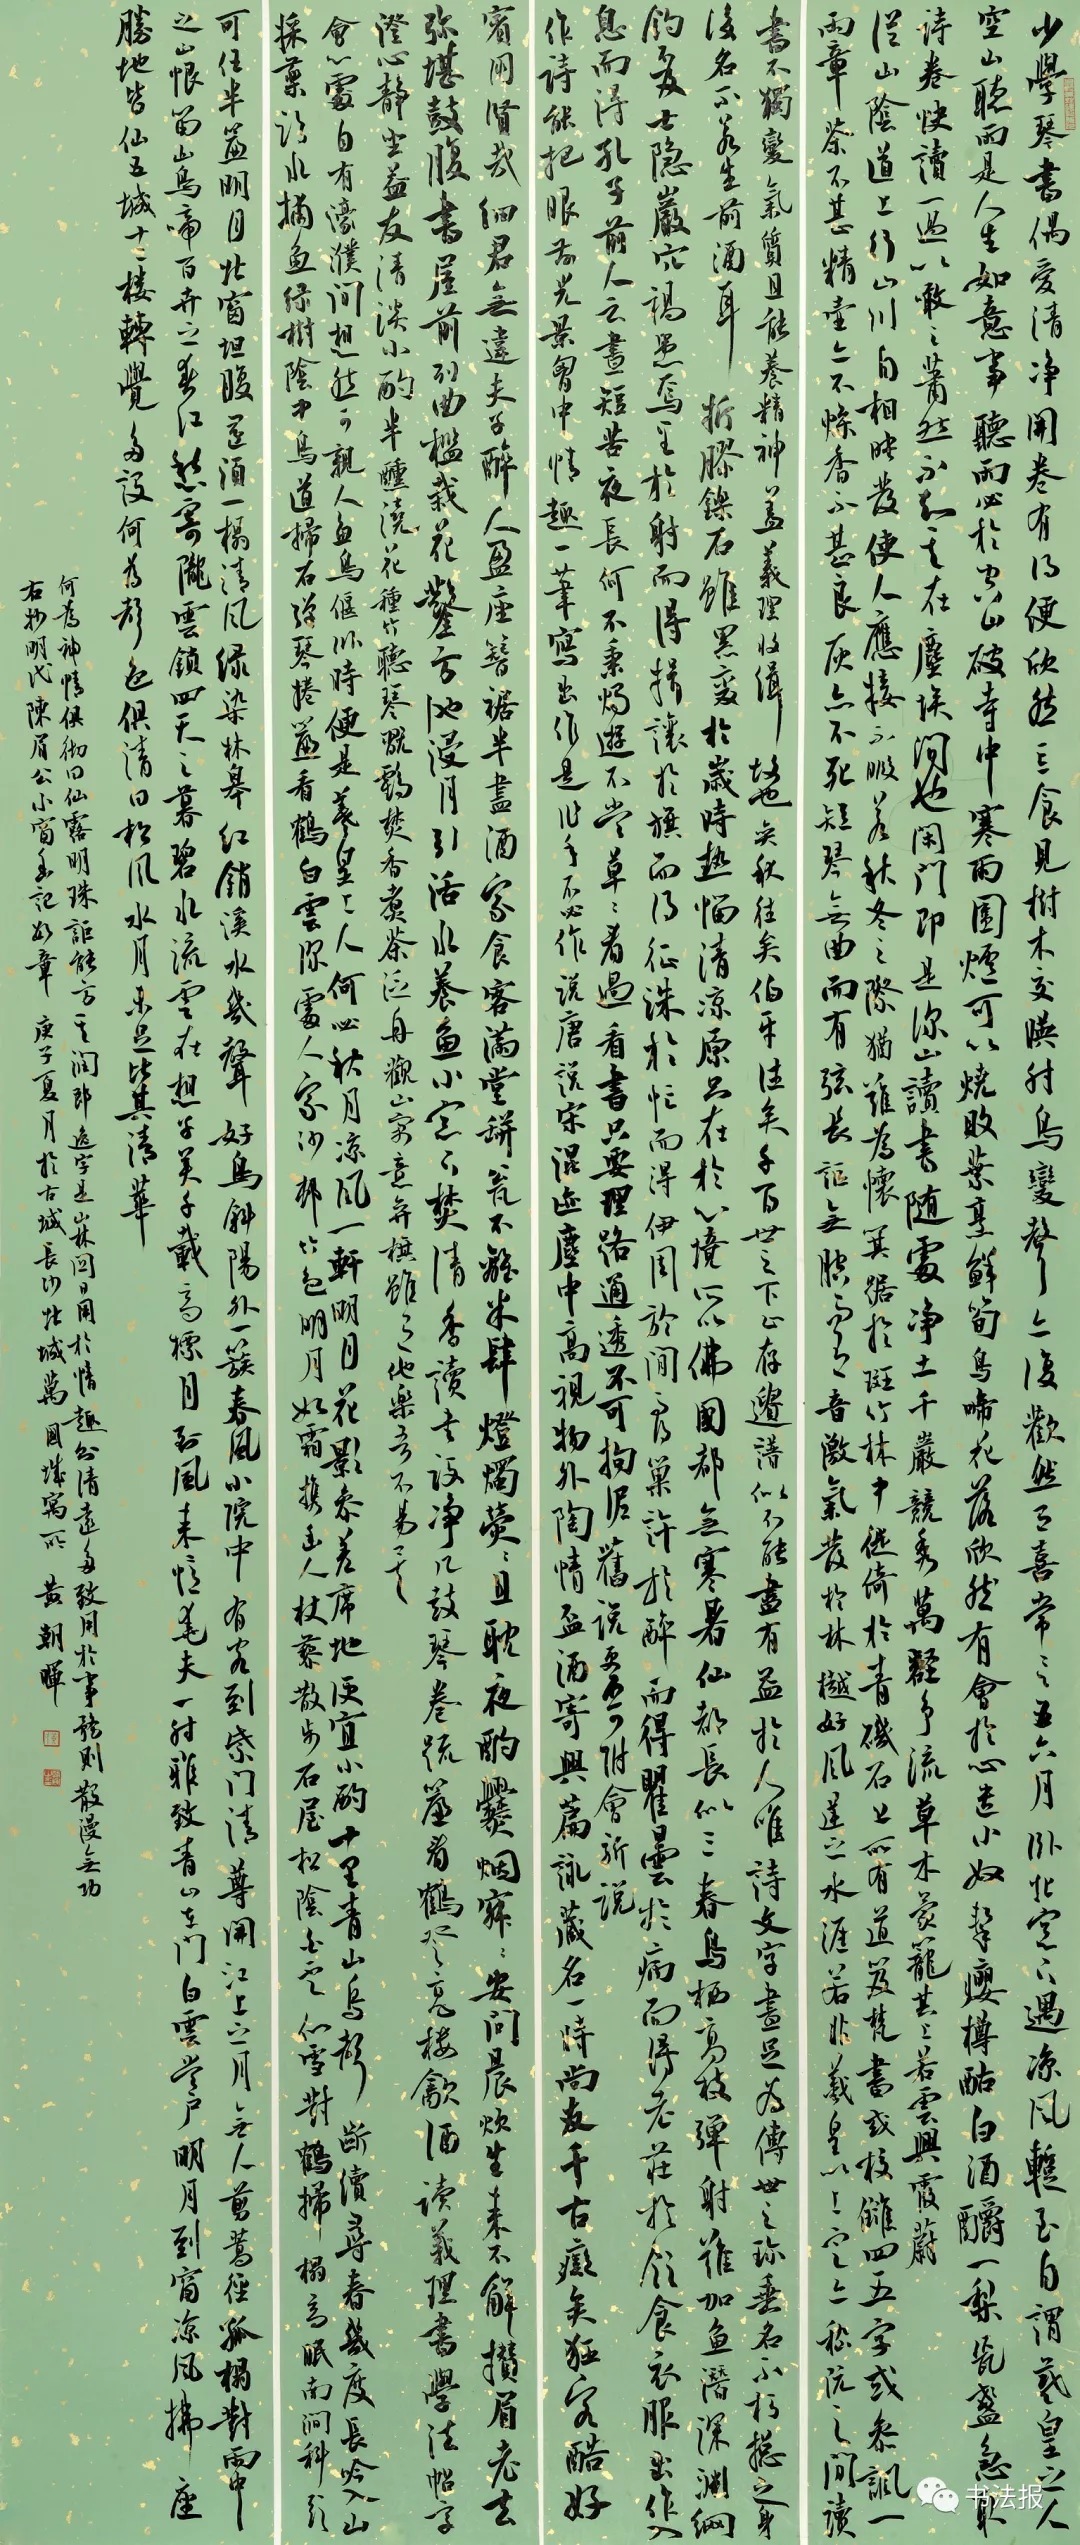 少學琴書偶愛清淨開卷有得便欣然忘食見樹木交映時鳥變聲亦復歡然有喜常言五六月卧北窗下遇涼風暫至自謂羲皇上人
空山聽雨是人生如意事聽雨必於空山破寺中寒雨圍爐可以燒敗葉烹鮮筍鳥啼花落欣然有會於心遣小奴挈癭樽酤白酒釂一梨花瓷盞急取
詩卷快讀一過以嚥之蕭然不知其在塵埃間也閉門即是深山讀書隨處淨土千巖競秀萬壑爭流草木蒙籠其上若雲興霞蔚
從山陰道上行山川自相映發使人應接不暇若秋冬之際猶難為懷箕踞於斑竹林中徙倚於青磯石上所有道笈梵書或校讎四五字或參諷一
兩章茶不甚精壺亦不燥香不甚良灰亦不死短琴無曲而有弦長謳無腔而有音激氣發於林樾好風逆之水涯若非羲皇以上定亦嵇阮之間讀
書不獨變氣質且能養精神蓋義理收緝故也奕秋往矣伯牙往矣千百世之下止存遺譜似不能盡有益於人唯詩文字畫足為傳世之珍垂名不朽總之身
後名不若生前酒耳折膠鑠石雖累變於歲時熱惱清涼原只在於心境所以佛國都無寒暑仙都長似三春鳥栖高枝彈射難加魚潛深淵網
釣不及士隱巖穴禍患焉至於射而得揖讓於旗而得征誅於忙而得伊周於閒而得巢許於醉而得瞿曇於病而得老莊於飲食衣服出作入
息而得孔子前人云晝短苦夜長何不秉燭遊不當草草看過看書只要理路通透不可拘泥舊說更不可附會新說
作詩能把眼前光景胸中情趣一筆寫出便是作手不必說唐說宋混迹塵中高視物外陶情盃酒寄興篇詠藏名一時尚友千古癡矣狂客酷好
賓朋賢哉細君無違夫子醉人盈座簪裾半盡酒家食客滿堂缾甕不離米肆燈燭熒熒且耽夜酌爨烟寂寂安問晨炊生來不解攢眉老去
彌堪鼓腹書屋前列曲檻栽花鑿方池浸月引活水養魚小窗下焚清香讀書設淨几鼓琴卷疏簾看鶴登高樓飲酒讀義理書學法帖字
澄心靜坐益友清談小酌半醺澆花種竹聽琴翫鶴焚香煮茶泛舟觀山寓意弈棋雖有他樂吾不易矣
會心處自有濠濮間想然可親人魚鳥偃卧時便是羲皇上人何必秋月涼風一軒明月花影參差席地便宜小酌十里青山鳥聲斷續尋春幾度長吟入山
採藥臨水捕魚綠樹陰中鳥道掃石彈琴捲簾看鶴白雲深處人家沙邨竹色明月如霜攜幽人杖藜散步石屋松陰白雲似雪對鶴掃榻高眠南澗科頭
可任半簾明月北窗坦腹還須一榻清風綠染林皋紅銷溪水幾聲好鳥斜陽外一簇春風小院中有客到柴門清尊開江上之月無人剪蒿徑孤榻對雨中
之山恨留山鳥啼百卉之春紅愁寄隴雲鎖四天之暮碧水流雲在想子美千載高標月到風來憶堯夫一時雅致青山在門白雲當戶明月到窗涼風拂座
勝地皆仙五城十二樓轉覺多設何為聲色俱清曰松風水月未足比其清華
何為神情俱徹曰仙露明珠詎能方其潤郎逸字是山林間目用於情趣則清遠多致用於事務則散漫無功
右抄明代陳眉公小窗幽記數章庚子夏月於古城長沙北城萬國城寓所黃朝暉
书法报